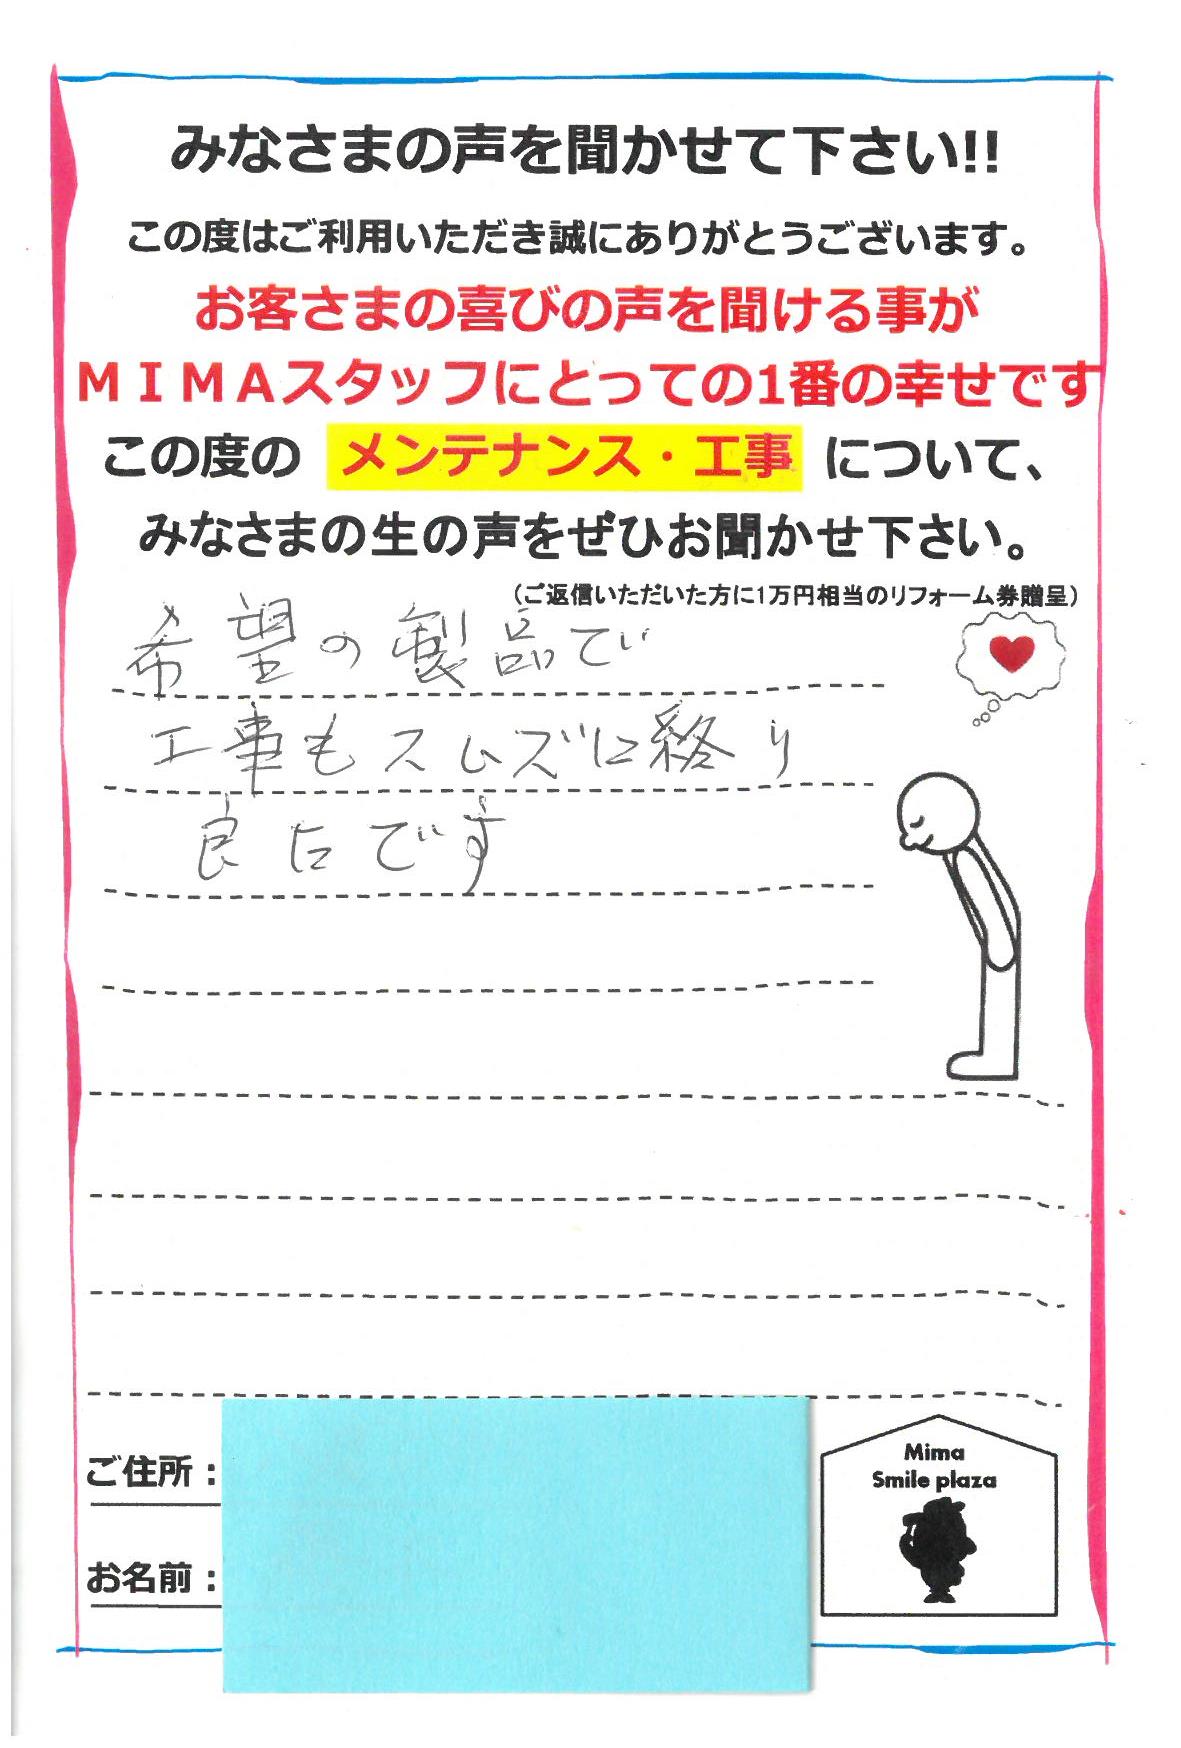 みなさまの声を聞かせて下さい!!
この度はご利用いただき誠にありがとうございます。
お客さまの喜びの声を聞ける事が
ＭＩＭＡスタッフにとっての1番の幸せです
この度の メンテナンス・工事 について、
みなさまの生の声をぜひお聞かせ下さい。
（ご返信いただいた方に1万円相当のリフォーム券贈呈）
希望の製品で
工事もスムズに終り
良たです
ご住所：
お名前：
Mima
Smile plaza